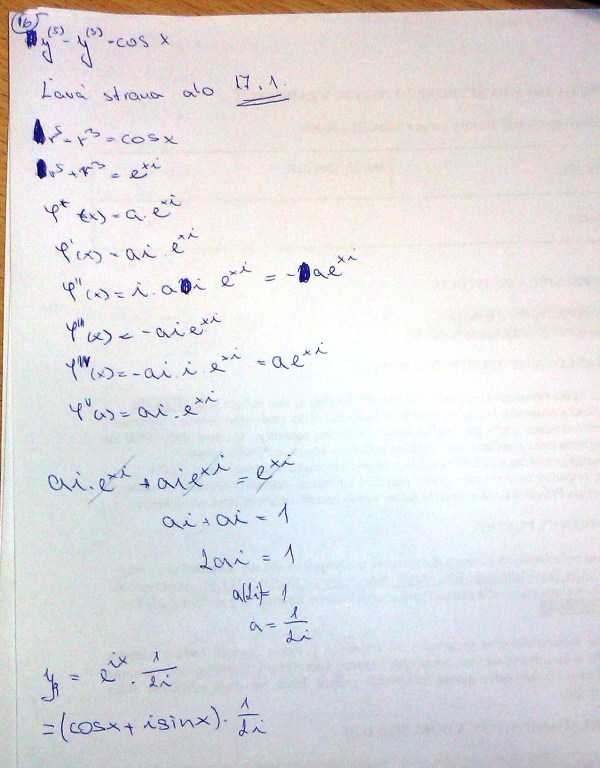 16
y⁽⁵⁾ - y⁽³⁾ = cos x
Ľavá strana ako 17.1.
r⁵ - r³ = cosx
r⁵ + r³ = e^{xi}
φ* (x) = a · e^{xi}
φ'(x) = ai · e^{xi}
φ''(x) = i · a i e^{xi} = - a e^{xi}
φ'''(x) = -ai e^{xi}
φ^{IV}(x) = -ai · i · e^{xi} = a e^{xi}
φ^{V}(x) = ai · e^{xi}
ai · e^{xi} + ai e^{xi} = e^{xi}
ai + ai = 1
2ai = 1
a(2i) = 1
a = 1/2i
y = e^{ix} · 1/2i
= (cosx + i sinx) · 1/2i